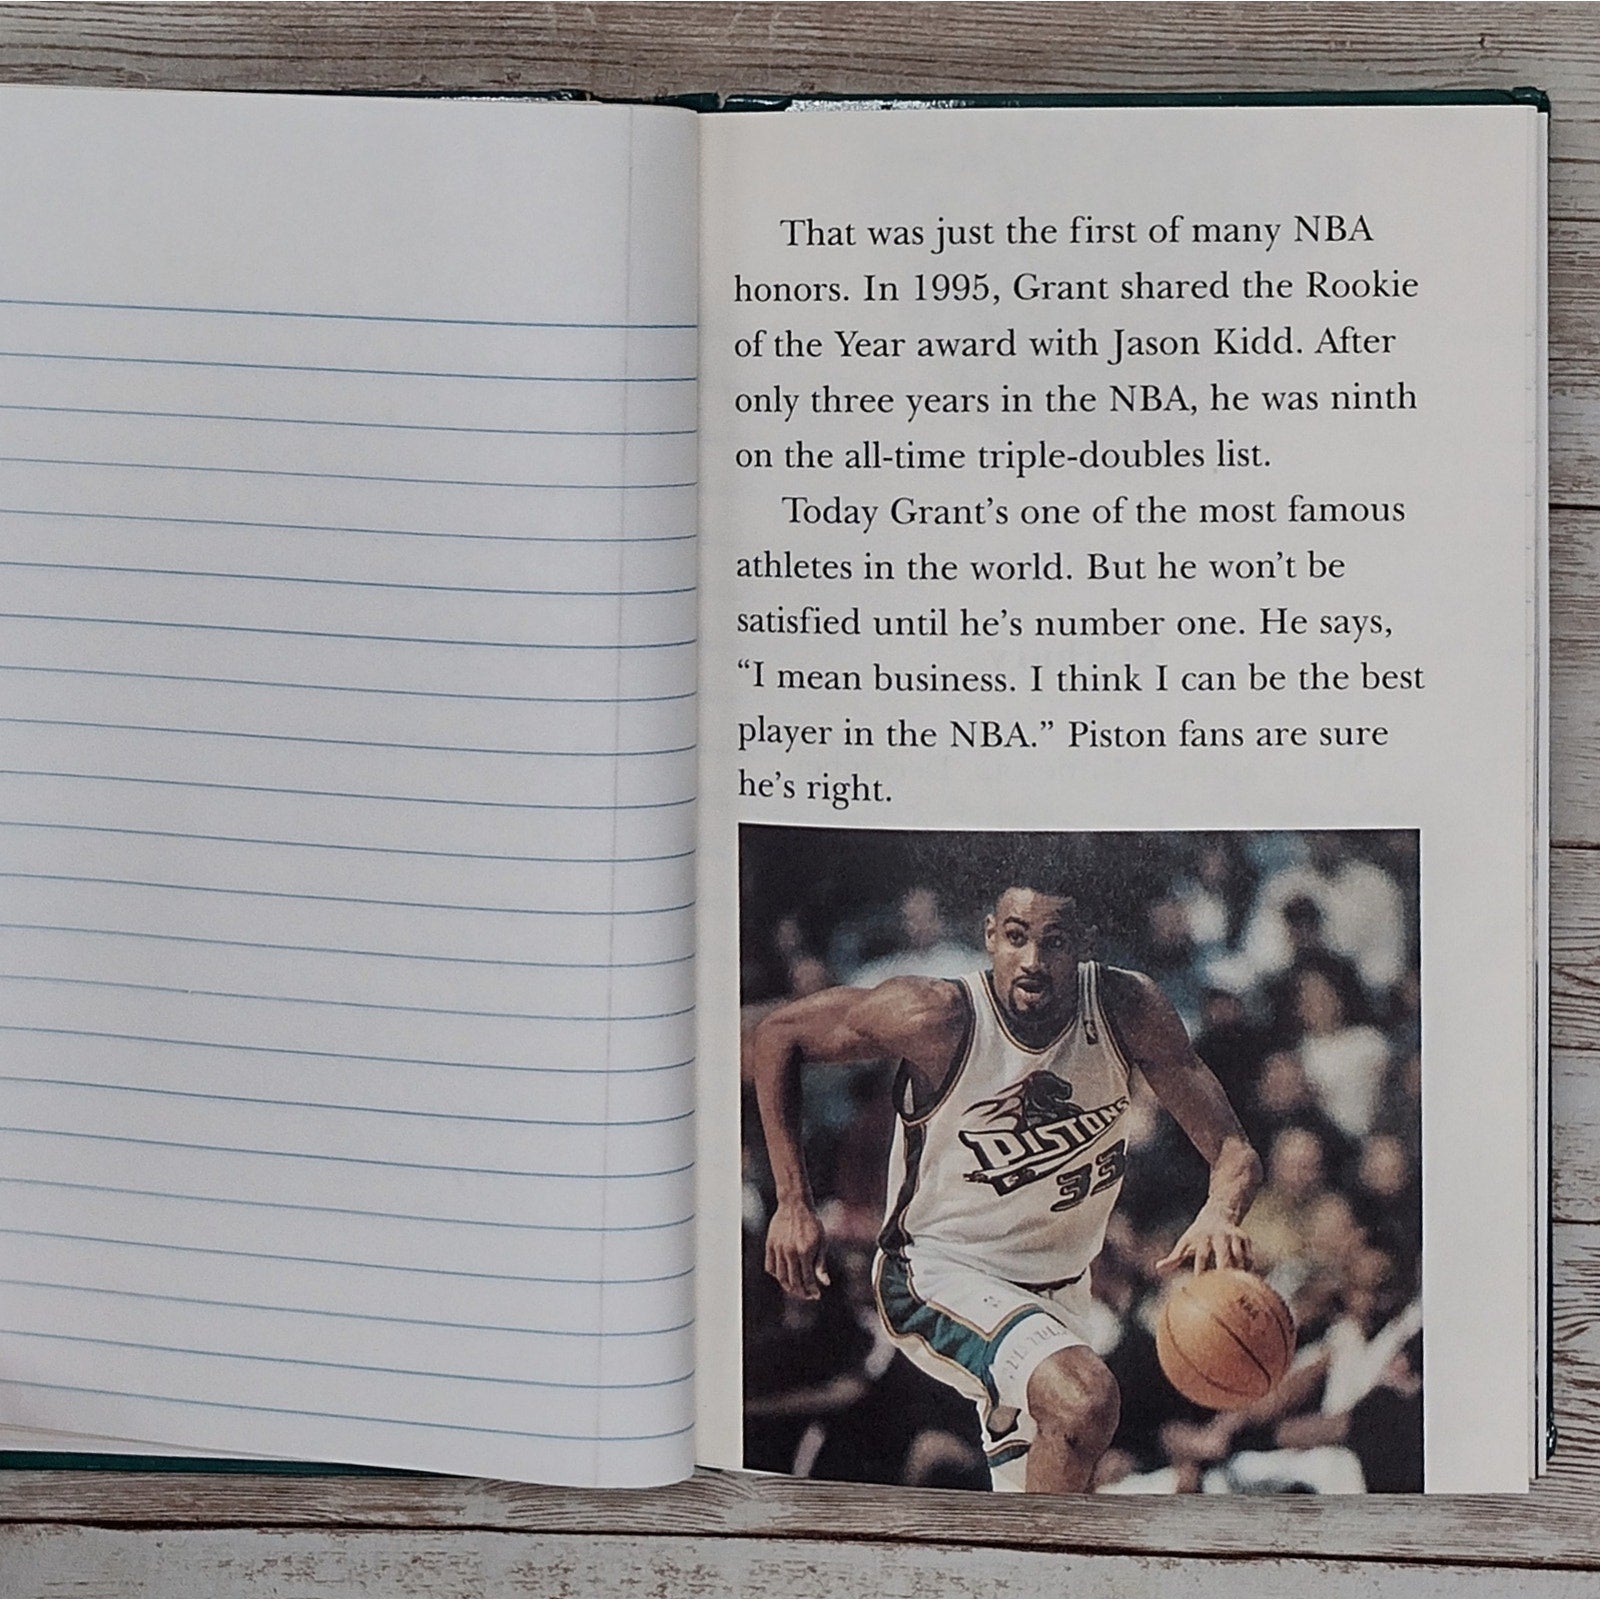 That was just the first of many NBA
honors. In 1995, Grant shared the Rookie
of the Year award with Jason Kidd. After
only three years in the NBA, he was ninth
on the all-time triple-doubles list.
Today Grant’s one of the most famous
athletes in the world. But he won’t be
satisfied until he’s number one. He says,
“I mean business. I think I can be the best
player in the NBA.” Piston fans are sure
he’s right.
PISTONS
33